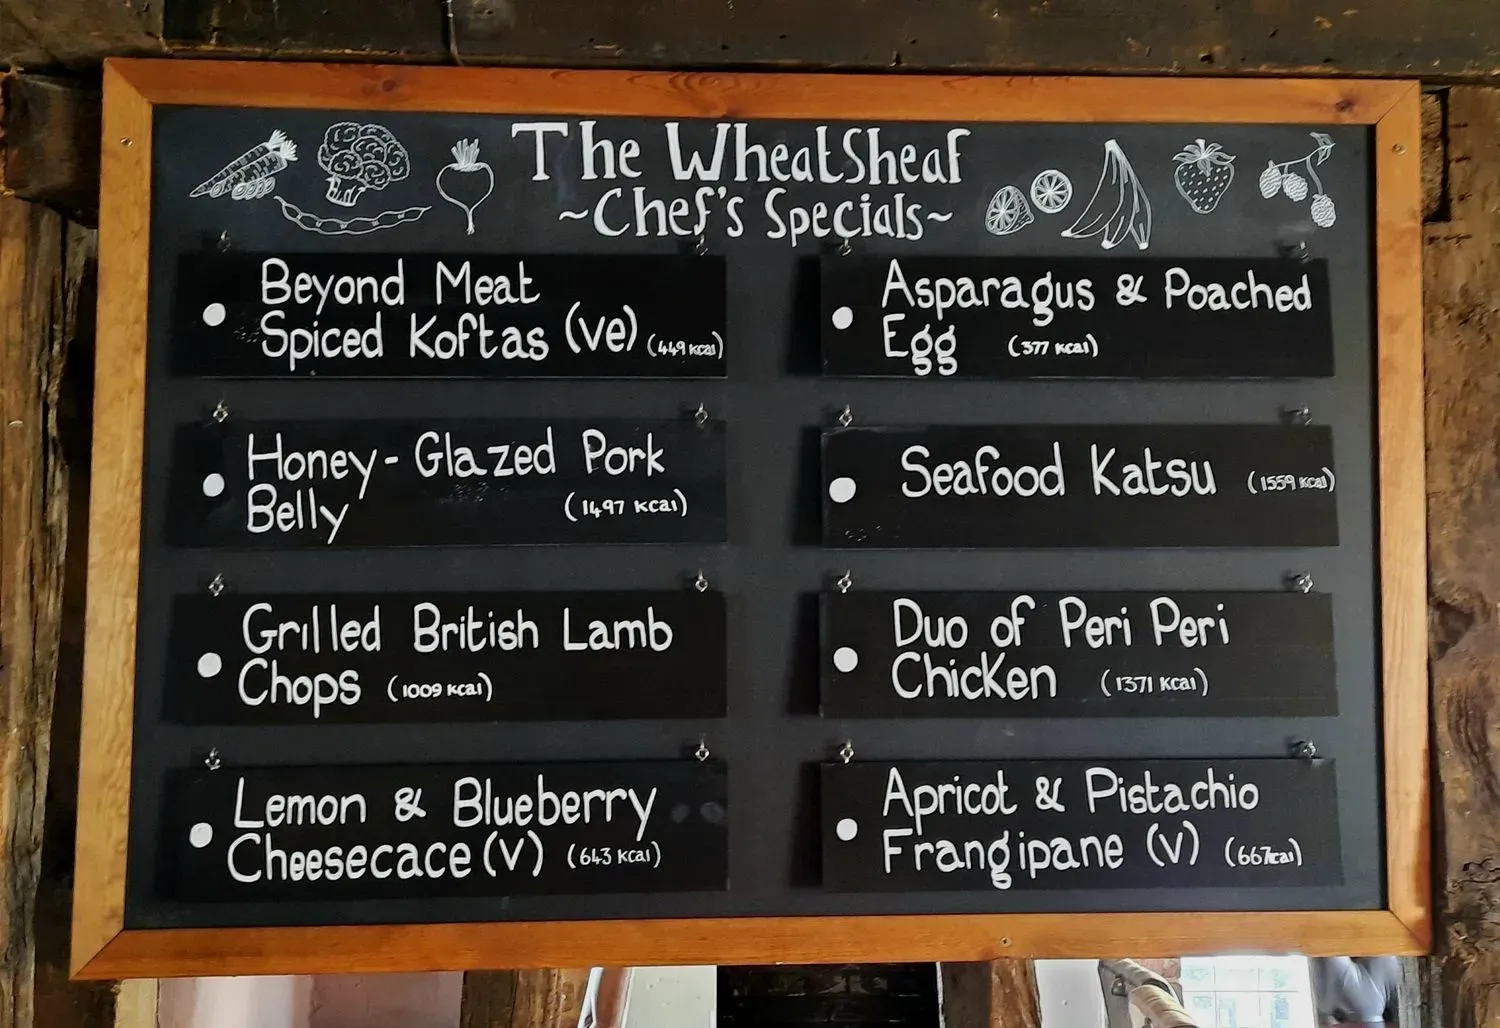 The WheatSheaf
~Chef's Specials~
Beyond Meat
Spiced Koftas (ve) (449 kcal)
Honey-Glazed Pork
Belly (1497 kcal)
Grilled British Lamb
Chops (1009 kcal)
Lemon & Blueberry
Cheesecace (v) (643 kcal)
Asparagus & Poached
Egg (377 kcal)
Seafood Katsu (1559 kcal)
Duo of Peri Peri
Chicken (1371 kcal)
Apricot & Pistachio
Frangipane (v) (667kcal)